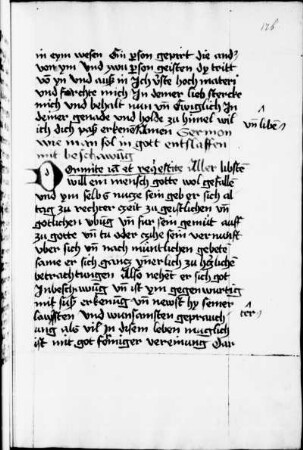 126
in eym wesen Ein person gepirt die and
von ym und zwu person geisten dy tritt
vo yn und auß in Ich
mich und forchte mich In deiner lieb stercke
mich und behalt nun vñ Ewiglich In
deiner genade und holde zu himel wil
vñ liebē
ich dich paß erkennen Amen Sermon
wie man sol in gott entslaffen
mit beschawūg
Dormite iā et reqiescite Aller libste
will ein mensch gotte wol gefalle
und ym selbs nutze sein geb er sich al
tag zu rechter czeit zu geistlichen vñ
gotlichen ubūg vñ har sein gemut auff
zu gotte vñ tu oder czihe sein vernūfft
uber sich vñ nach mūntlichen gebete
same er sich gantz ynerlich zu
betrachtungen Also nehet er sich got
In beschawūg vñ ist ym gegenwurtig
mit suß erkenūg vñ newst hy seiner
ter
lawsten und wunsamsten geprauch
ung als vil In disem leben muglich
ist mit got formiger vereinung Dar